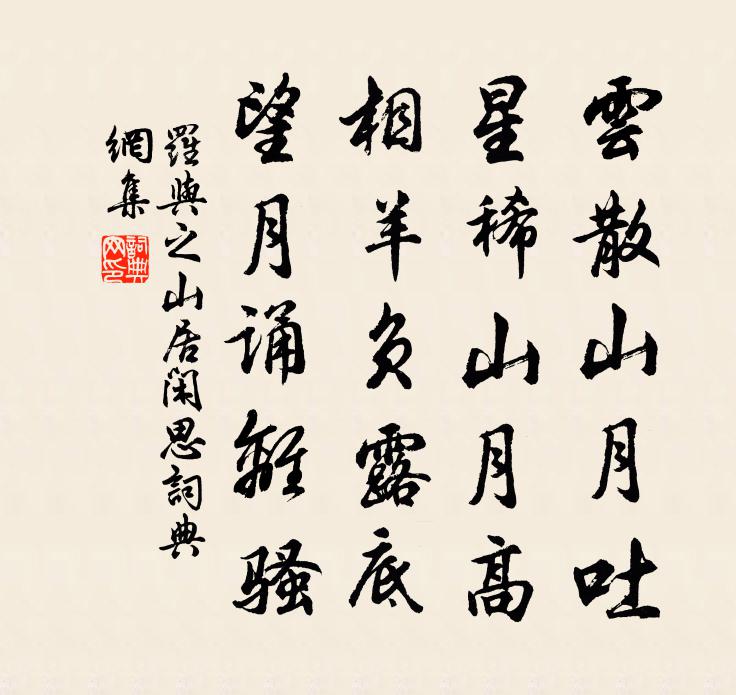 雲散山月吐
星稀山月高
相羊負露底
望月誦離騷
羅與之山居閑思詞典
網集
詞典
网印